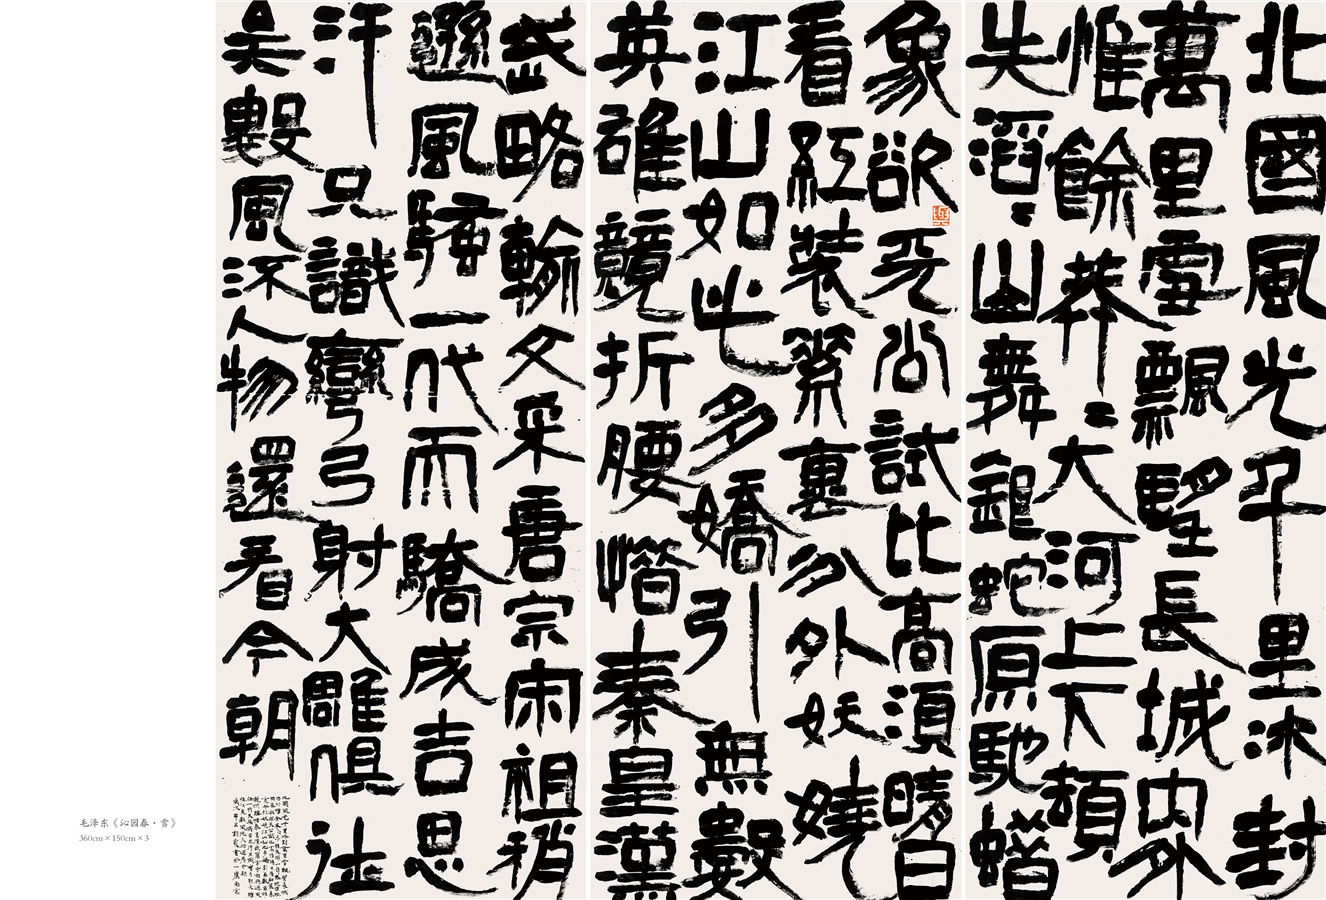 北國風光千里冰封
萬里雪飄望長城内外
惟餘莽〻大河上下頓
失滔〻山舞銀蛇原馳蠟
象欲天公試比高須晴日
看紅裝素裹分外妖嬈
江山如此多嬌引無數
英雄競折腰惜秦皇漢
武略輸文采唐宗宋祖稍
遜風騷一代而驕成吉思
汗只識彎弓射大雕俱往
矣數風流人物還看今朝
毛泽东《沁园春·雪》
360cm×150cm×3